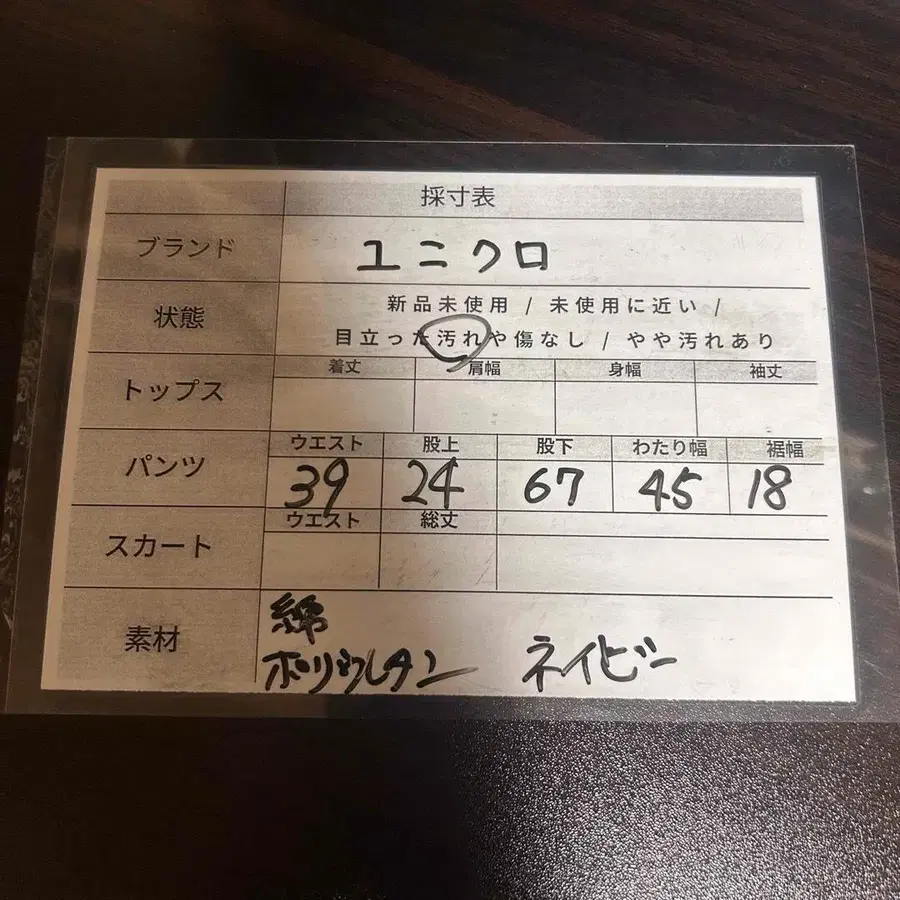 採寸表
ブランド ユニクロ
状態 新品未使用 / 未使用に近い /
目立った汚れや傷なし / やや汚れあり
着丈 肩幅 身幅 袖丈
トップス
ウエスト 股上 股下 わたり幅 裾幅
パンツ 39 24 67 45 18
ウエスト 総丈
スカート
素材 綿
ポリウレタン ネイビー